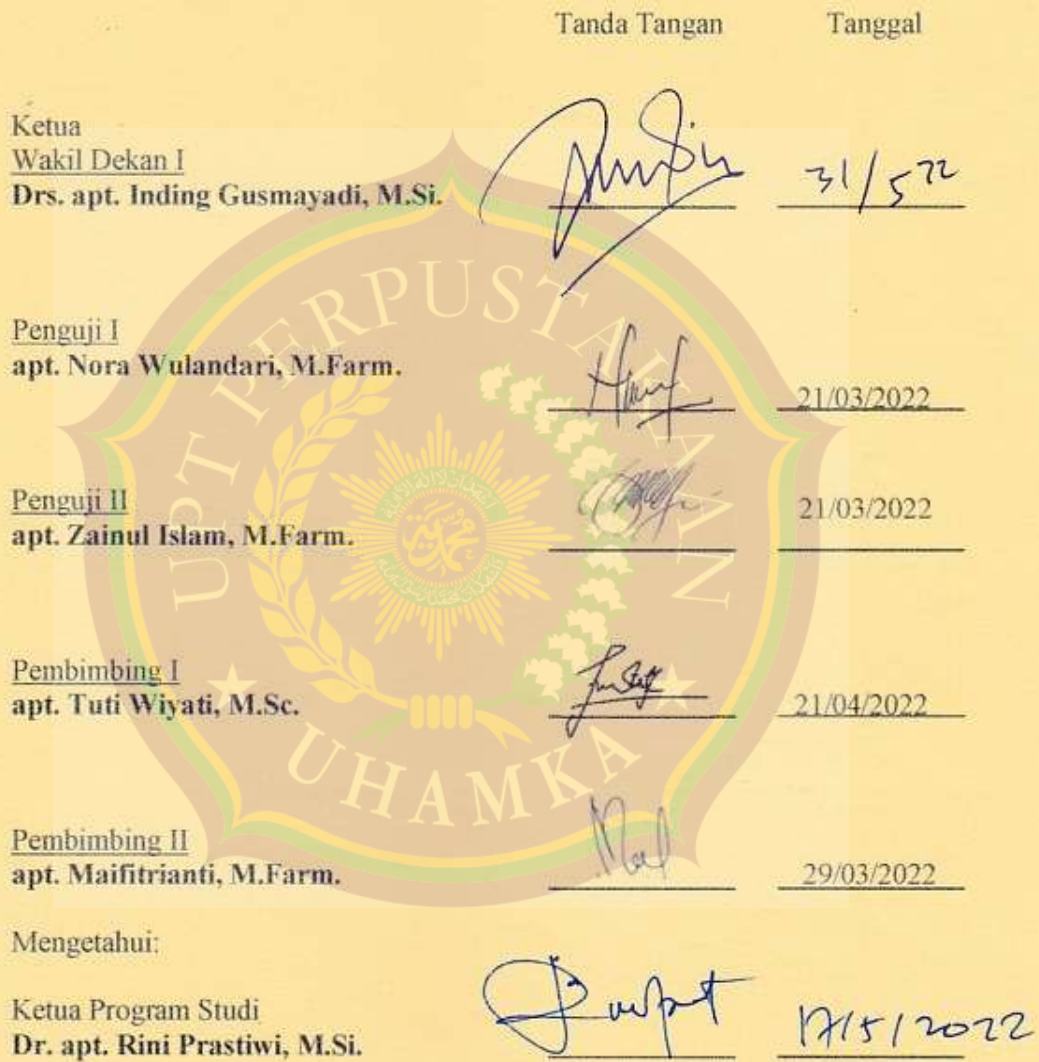 Tanda Tangan Tanggal
Ketua
Wakil Dekan I
Drs. apt. Inding Gusmayadi, M.Si. 31/5 22
Penguji I
apt. Nora Wulandari, M.Farm. 21/03/2022
Penguji II 21/03/2022
apt. Zainul Islam, M.Farm.
Pembimbing I
apt. Tuti Wiyati, M.Sc. 21/04/2022
Pembimbing II
apt. Maifitrianti, M.Farm. 29/03/2022
Mengetahui:
Ketua Program Studi
Dr. apt. Rini Prastiwi, M.Si. 17/5/2022
UPT PERPUSTAKAAN
UHAMKA